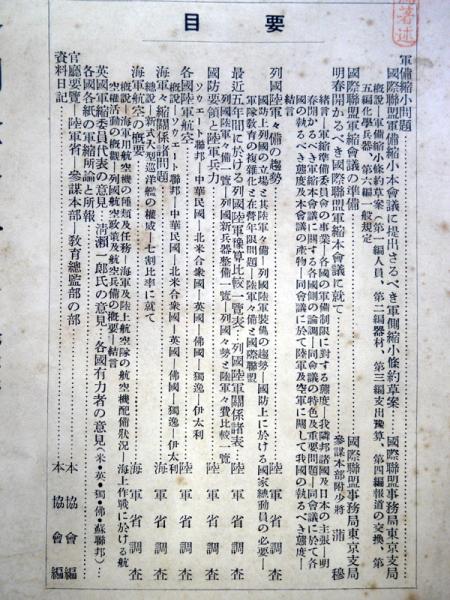 要目
軍備縮小問題
國際聯盟軍備縮小本會議に提出さるべき軍備縮小條約草案……國際聯盟事務局東京支局
概說―軍備縮小條約草案（第一編人員、第二編器材、第三編支出豫算、第四編報道の交換、第
五編化學兵器、第六編一般規定
國際聯盟軍縮會議の準備……國際聯盟事務局東京支局
明春開かるべき國際聯盟軍縮本會議に就て……參謀本部附少將 浦 穆
緖言―軍縮準備委員會の事業―各國の軍備制限に對する態度―我隣邦諸國及日本の主張―明
春開かるべき軍縮本會議に關する各國側の論調―同會議の特色及重要問題―同會議に於て各
國の執るべき態度及本會議の產物―同會議に於て陸軍及空軍に關して我國の執るべき態度―
結言
列國陸軍々備の趨勢……陸軍省調査
國防上列國の立場と其陸軍々備―列國陸軍裝備の趨勢―國防上に於ける國家總動員の必要―
軍隊敎育の複雜化と在營年限問題―陸軍々備と國際聯盟
最近五年間に於ける列國陸軍豫算比較一覽表・列國陸軍關係諸表
列國陸軍々備一覽―列國新兵器整備一覽―列國々勢と陸軍々費比較一覽
國防要領と陸軍兵力……陸軍省調査
ソウエート聯邦―中華民國―北米合衆國―英國―佛國―獨逸―伊太利
各國陸軍航空……陸軍省調査
概說―ソウエート聯邦―中華民國―北米合衆國―英國―佛國―獨逸―伊太利
海軍々縮に關する諸問題……海軍省調査
總說―新式大型巡洋艦の權威―七割比率に就て
海軍航空の槪要……海軍省調査
概說―海軍用航空機の種類及任務―海軍及陸上航空隊の航空機配備狀況―海上作戰に於ける航
空機活動の槪觀―列國航空政策及航空兵備の槪要―結言
英國軍縮委員代表の意見・淸瀨一郞氏の意見・各國有力者の意見（米・英・獨・佛・蘇聯邦）
各國各紙の軍縮所論と所報……本協會編
官廳要覽―陸軍省―參謀本部―敎育總監部の部
資料日記……本協會編
著述